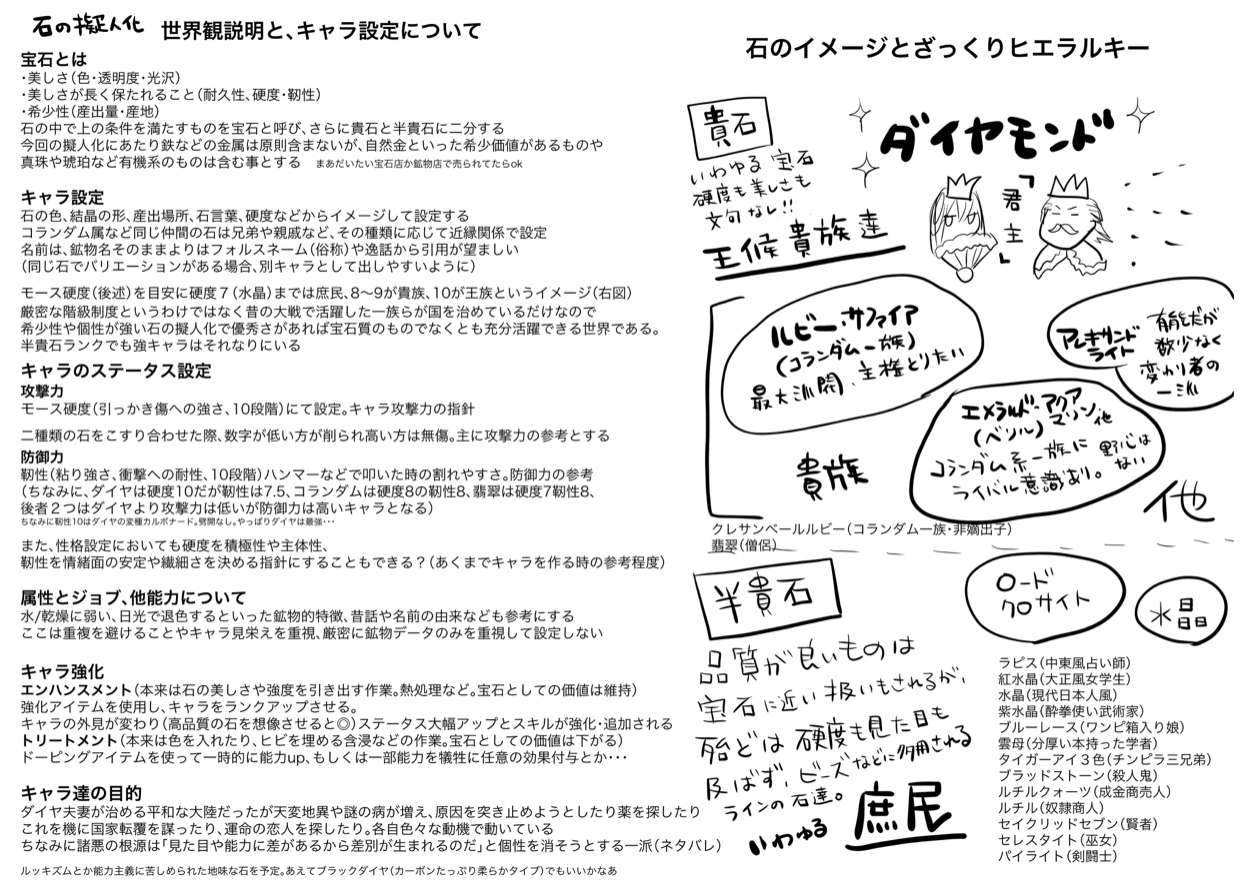 石の擬人化 世界観説明と、キャラ設定について
宝石とは
・美しさ（色・透明度・光沢）
・美しさが長く保たれること（耐久性、硬度・靭性）
・希少性（産出量・産地）
石の中で上の条件を満たすものを宝石と呼び、さらに貴石と半貴石に二分する
今回の擬人化にあたり鉄などの金属は原則含まないが、自然金といった希少価値があるものや
真珠や琥珀など有機系のものは含む事とする　まあだいたい宝石店か鉱物店で売られてたらok
キャラ設定
石の色、結晶の形、産出場所、石言葉、硬度などからイメージして設定する
コランダム属など同じ仲間の石は兄弟や親戚など、その種類に応じて近縁関係で設定
名前は、鉱物名そのままよりはフォルスネーム（俗称）や逸話から引用が望ましい
（同じ石でバリエーションがある場合、別キャラとして出しやすいように）
モース硬度（後述）を目安に硬度７（水晶）までは庶民、8〜9が貴族、10が王族というイメージ（右図）
厳密な階級制度というわけではなく昔の大戦で活躍した一族らが国を治めているだけなので
希少性や個性が強い石の擬人化で優秀さがあれば宝石質のものでなくとも充分活躍できる世界である。
半貴石ランクでも強キャラはそれなりにいる
キャラのステータス設定
攻撃力
モース硬度（引っかき傷への強さ、10段階）にて設定。キャラ攻撃力の指針
二種類の石をこすり合わせた際、数字が低い方が削られ高い方は無傷。主に攻撃力の参考とする
防御力
靭性（粘り強さ、衝撃への耐性、10段階）ハンマーなどで叩いた時の割れやすさ。防御力の参考
（ちなみに、ダイヤは硬度10だが靭性は7.5、コランダムは硬度8の靭性8、翡翠は硬度7靭性8、
後者２つはダイヤより攻撃力は低いが防御力は高いキャラとなる）
ちなみに靭性10はダイヤの変種カルボナード。劈開なし。やっぱりダイヤは最強・・・
また、性格設定においても硬度を積極性や主体性、
靭性を情緒面の安定や繊細さを決める指針にすることもできる？（あくまでキャラを作る時の参考程度）
属性とジョブ、他能力について
水/乾燥に弱い、日光で退色するといった鉱物的特徴、昔話や名前の由来なども参考にする
ここは重複を避けることやキャラ見栄えを重視、厳密に鉱物データのみを重視して設定しない
キャラ強化
エンハンスメント（本来は石の美しさや強度を引き出す作業。熱処理など。宝石としての価値は維持）
強化アイテムを使用し、キャラをランクアップさせる。
キャラの外見が変わり（高品質の石を想像させると◎）ステータス大幅アップとスキルが強化・追加される
トリートメント（本来は色を入れたり、ヒビを埋める含浸などの作業。宝石としての価値は下がる）
ドーピングアイテムを使って一時的に能力up、もしくは一部能力を犠牲に任意の効果付与とか・・・
キャラ達の目的
ダイヤ夫妻が治める平和な大陸だったが天変地異や謎の病が増え、原因を突き止めようとしたり薬を探したり
これを機に国家転覆を謀ったり、運命の恋人を探したり。各自色々な動機で動いている
ちなみに諸悪の根源は「見た目や能力に差があるから差別が生まれるのだ」と個性を消そうとする一派（ネタバレ）
ルッキズムとか能力主義に苦しめられた地味な石を予定。あえてブラックダイヤ（カーボンたっぷり柔らかタイプ）でもいいかなあ
石のイメージとざっくりヒエラルキー
貴石
いわゆる宝石
硬度も美しさも
文句なし!!
王候貴族達
ダイヤモンド
「君主」
ルビー・サファイア
（コランダム一族）
最大派閥、主権とりたい
アレキサンド
ライト
有能だが
数少なく
変わり者の
一派
エメラルド・アクア
マリン他
（ベリル）
コランダム系一族に
ライバル意識あり。
野心は
ない
貴族
他
クレサンベールルビー（コランダム一族・非嫡出子）
翡翠（僧侶）
半貴石
品質が良いものは
宝石に近い扱いもされるが、
殆どは硬度も見た目も
及ばず、ビーズなどに多用される
ラインの石達。
いわゆる 庶民
ロード
クロサイト
水晶
ラピス（中東風占い師）
紅水晶（大正風女学生）
水晶（現代日本人風）
紫水晶（酔拳使い武術家）
ブルーレース（ワンピ箱入り娘）
雲母（分厚い本持った学者）
タイガーアイ３色（チンピラ三兄弟）
ブラッドストーン（殺人鬼）
ルチルクォーツ（成金商売人）
ルチル（奴隷商人）
セイクリッドセブン（賢者）
セレスタイト（巫女）
パイライト（剣闘士）